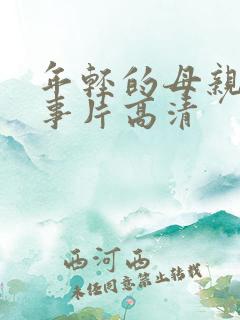 年轻的母亲
事片高清
西河西
未经同意禁止转载